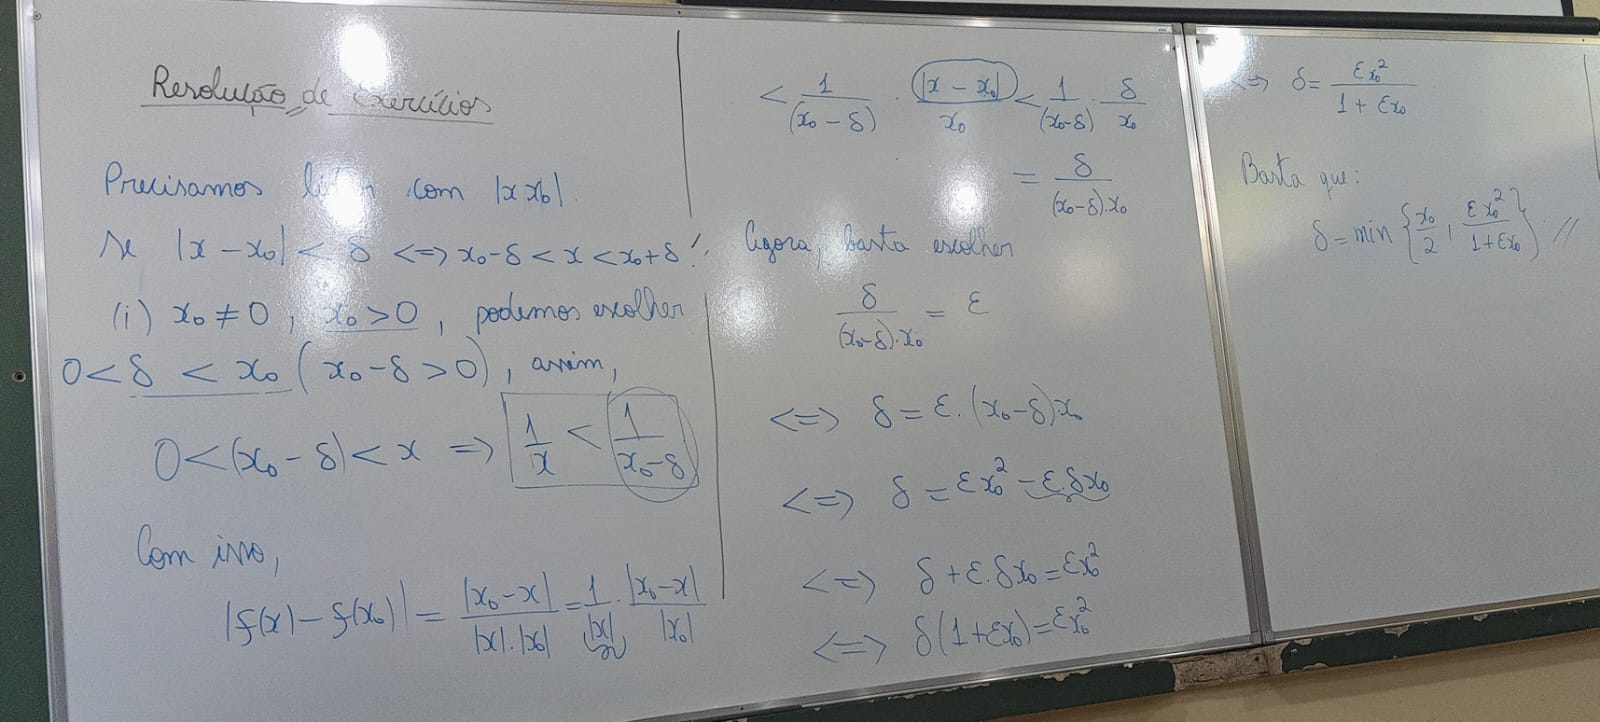 Resolução de Exercícios
Precisamos com |x x₀|.
se |x - x₀| < δ <=> x₀-δ < x < x₀+δ
(i) x₀ ≠ 0, x₀ > 0, podemos escolher
0 < δ < x₀ (x₀-δ > 0), assim,
0 < (x₀ - δ) < x => 1/x < 1/(x₀-δ)
Com isso,
|f(x) - f(x₀)| = |x₀-x|/(|x|.|x₀|) = 1/|x| . |x₀-x|/|x₀|
< 1/(x₀-δ) . |x - x₀|/x₀ < 1/(x₀-δ) . δ/x₀
= δ/((x₀-δ).x₀)
Agora, basta escolher
δ/((x₀-δ).x₀) = ε
<=> δ = ε.(x₀-δ)x₀
<=> δ = εx₀² - ε.δx₀
<=> δ + ε.δx₀ = εx₀²
<=> δ(1+εx₀) = εx₀²
<=> δ = εx₀²/(1 + εx₀)
Basta que:
δ = min {x₀/2, εx₀²/(1+εx₀)} //